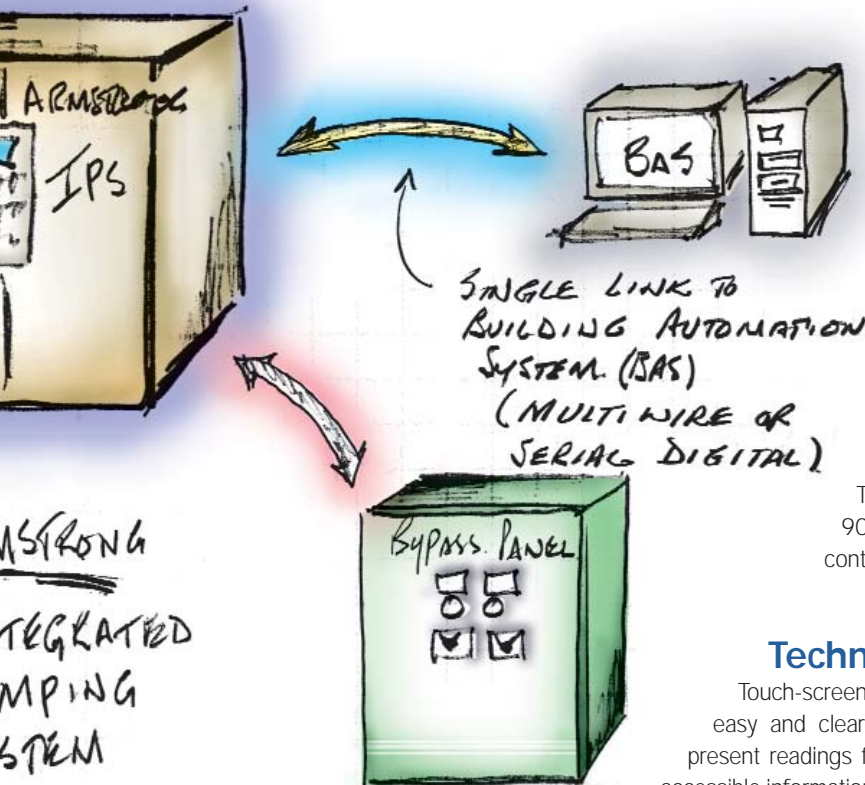 ARMSTRONG
IPS
BAS
SINGLE LINK TO
BUILDING AUTOMATION
SYSTEM. (BAS)
(MULTIWIRE OR
SERIAL DIGITAL)
BYPASS PANEL
MSTRONG
TEGRATED
MPING
STEM
T
90
cont
Techn
Touch-screen
easy and clear
present readings f
accessible information